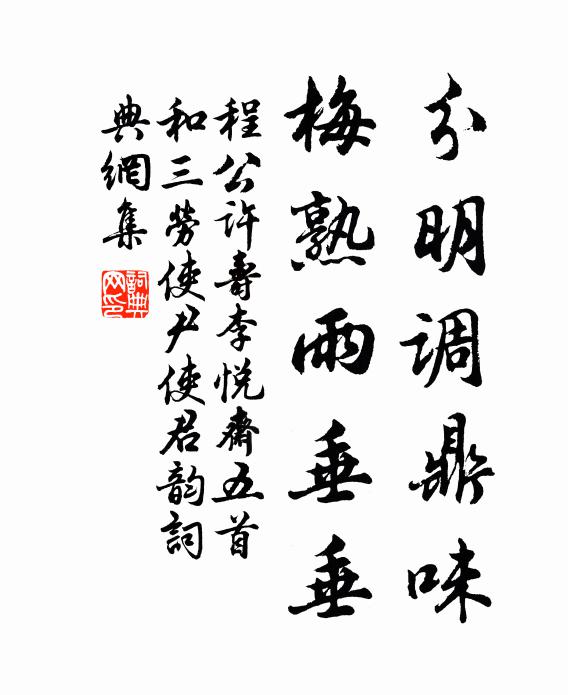 分明调鼎味
梅熟雨垂垂
程公许寿李悦斋五首
和三劳使尹使君韵词
典网集
词典网印